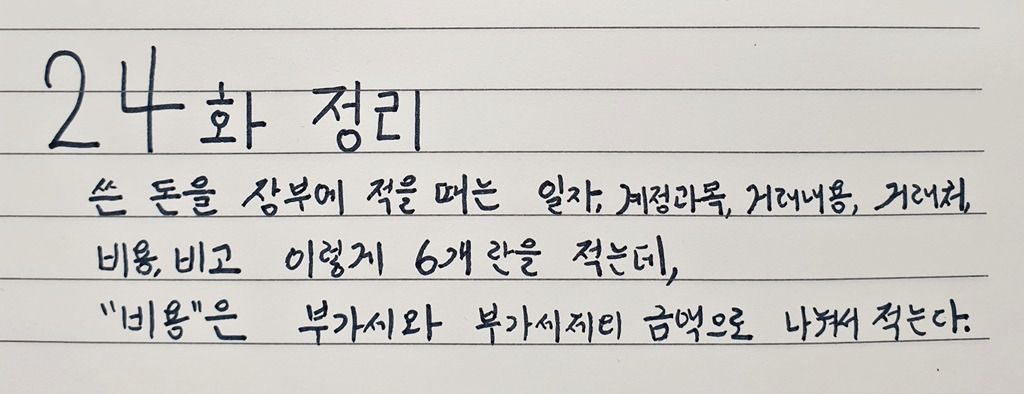 24화 정리
쓴 돈을 장부에 적을 때는 일자, 계정과목, 거래내용, 거래처,
비용, 비고 이렇게 6개 란을 적는데,
"비용"은 부가세와 부가세제외 금액으로 나눠서 적는다.